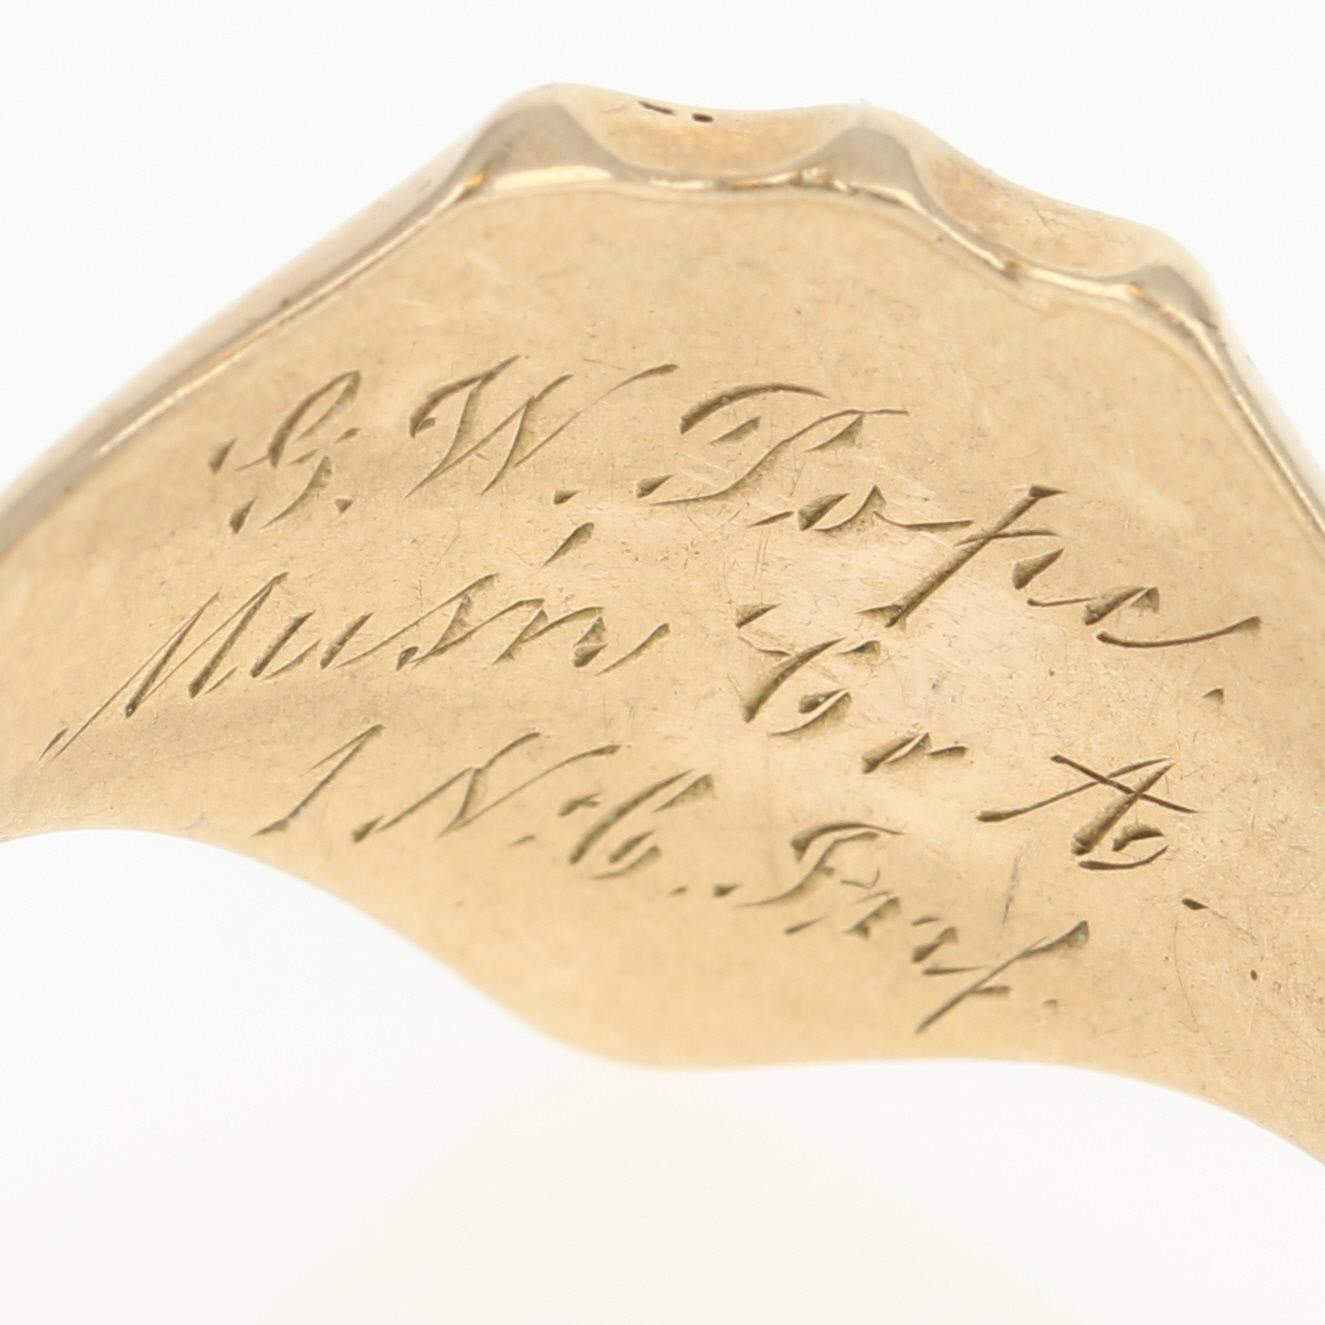 G. W. Pope.
Musn Co A.
1 N. C. Inf.